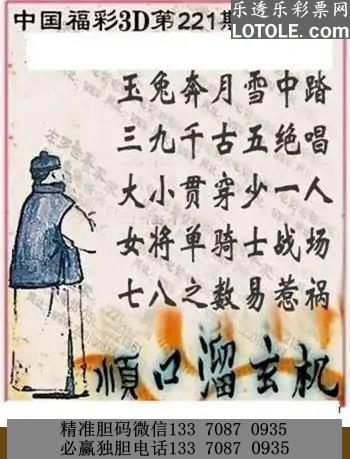 中国福彩3D第221期
乐透乐彩票网
LOTOLE.com
玉兔奔月雪中踏
三九千古五绝唱
大小贯穿少一人
女将单骑士战场
七八之数易惹祸
順口溜玄机
精准胆码微信133 7087 0935
必赢独胆电话133 7087 0935